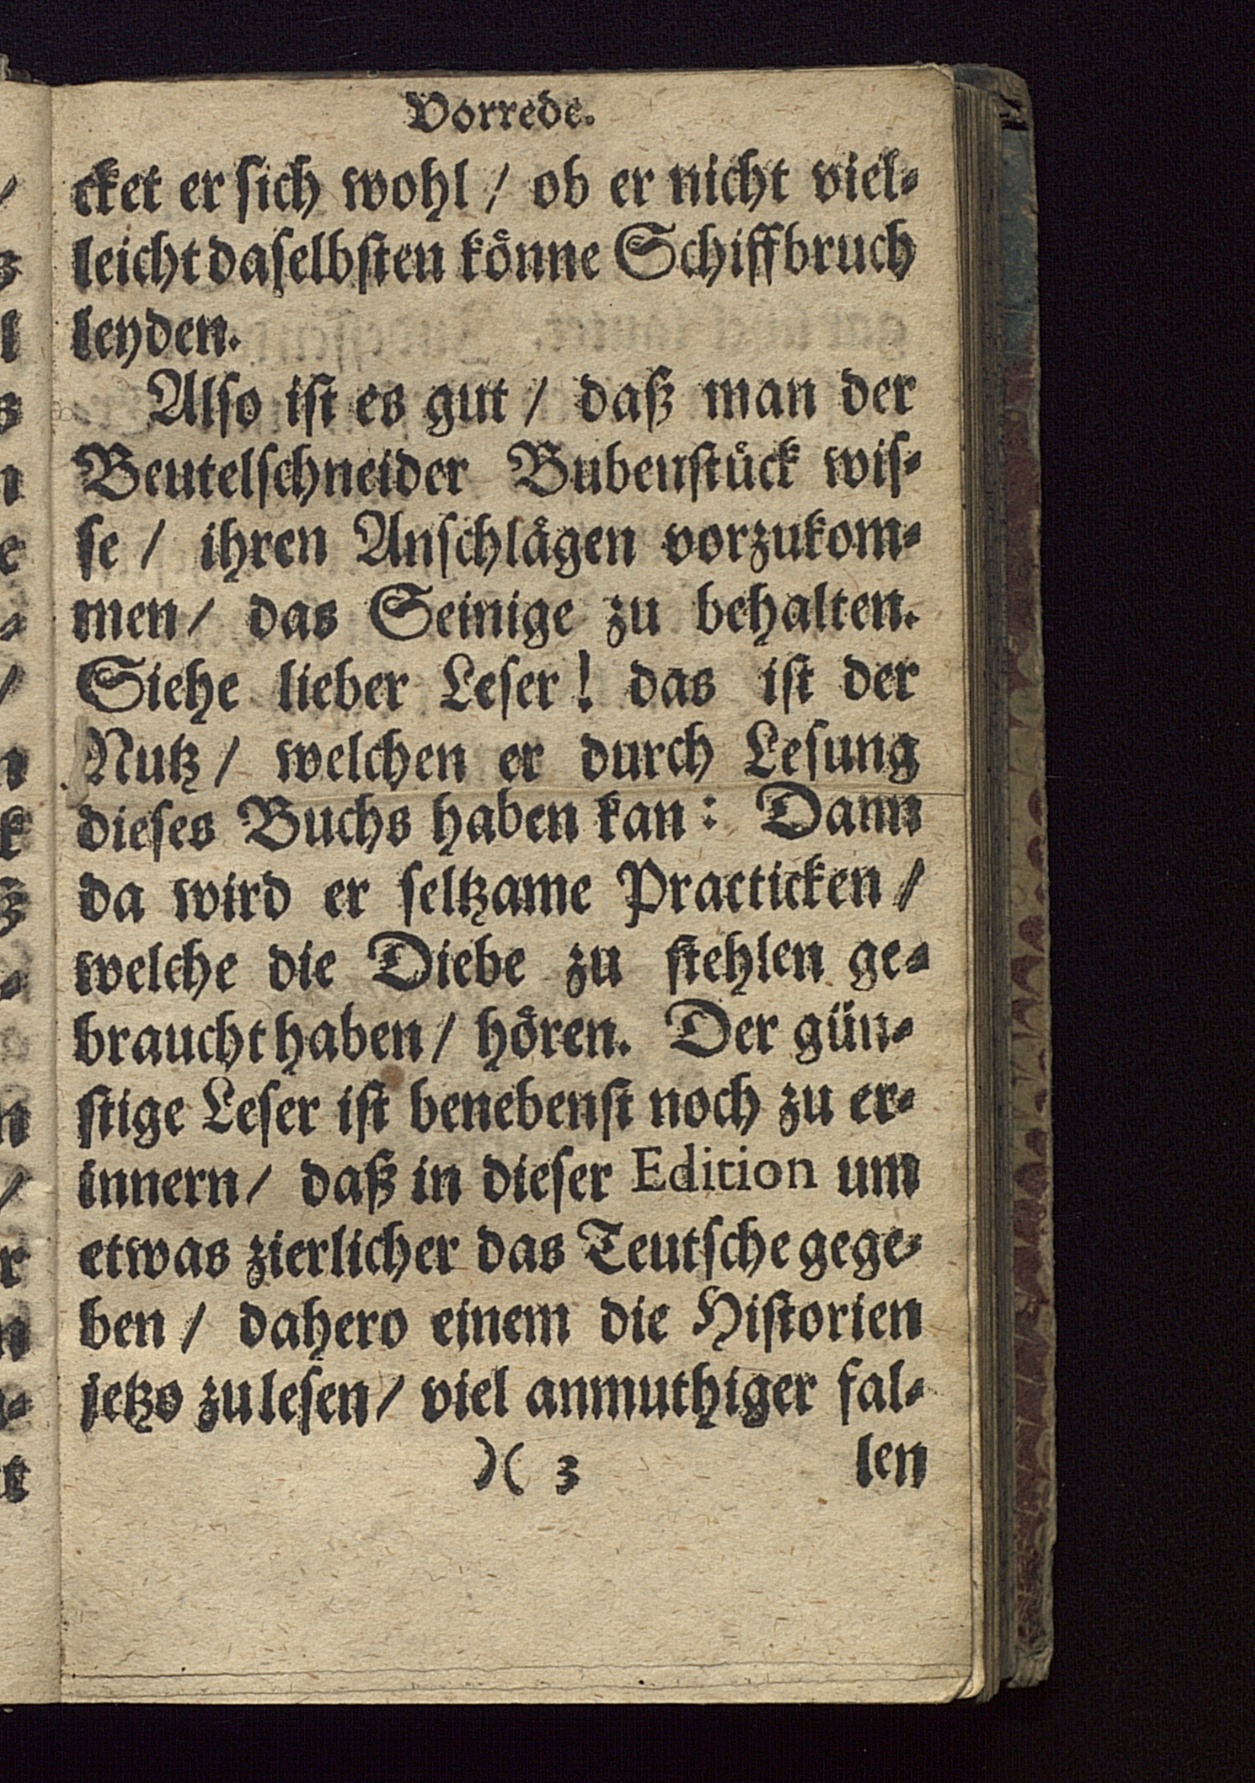 Vorrede.
cket er sich wohl / ob er nicht viel-
leicht daselbsten könne Schiffbruch
leyden.
Also ist es gut / daß man der
Beutelschneider Bubenstück wis-
se / ihren Anschlägen vorzukom-
men / das Seinige zu behalten.
Siehe lieber Leser! das ist der
Nutz / welchen er durch Lesung
dieses Buchs haben kan: Dann
da wird er seltzame Practicken /
welche die Diebe zu stehlen ge-
braucht haben / hören. Der gün-
stige Leser ist benebenst noch zu er-
innern / daß in dieser Edition um
etwas zierlicher das Teutsche gege-
ben / dahero einem die Historien
jetzo zu lesen / viel anmuthiger fal-
)( 3 len